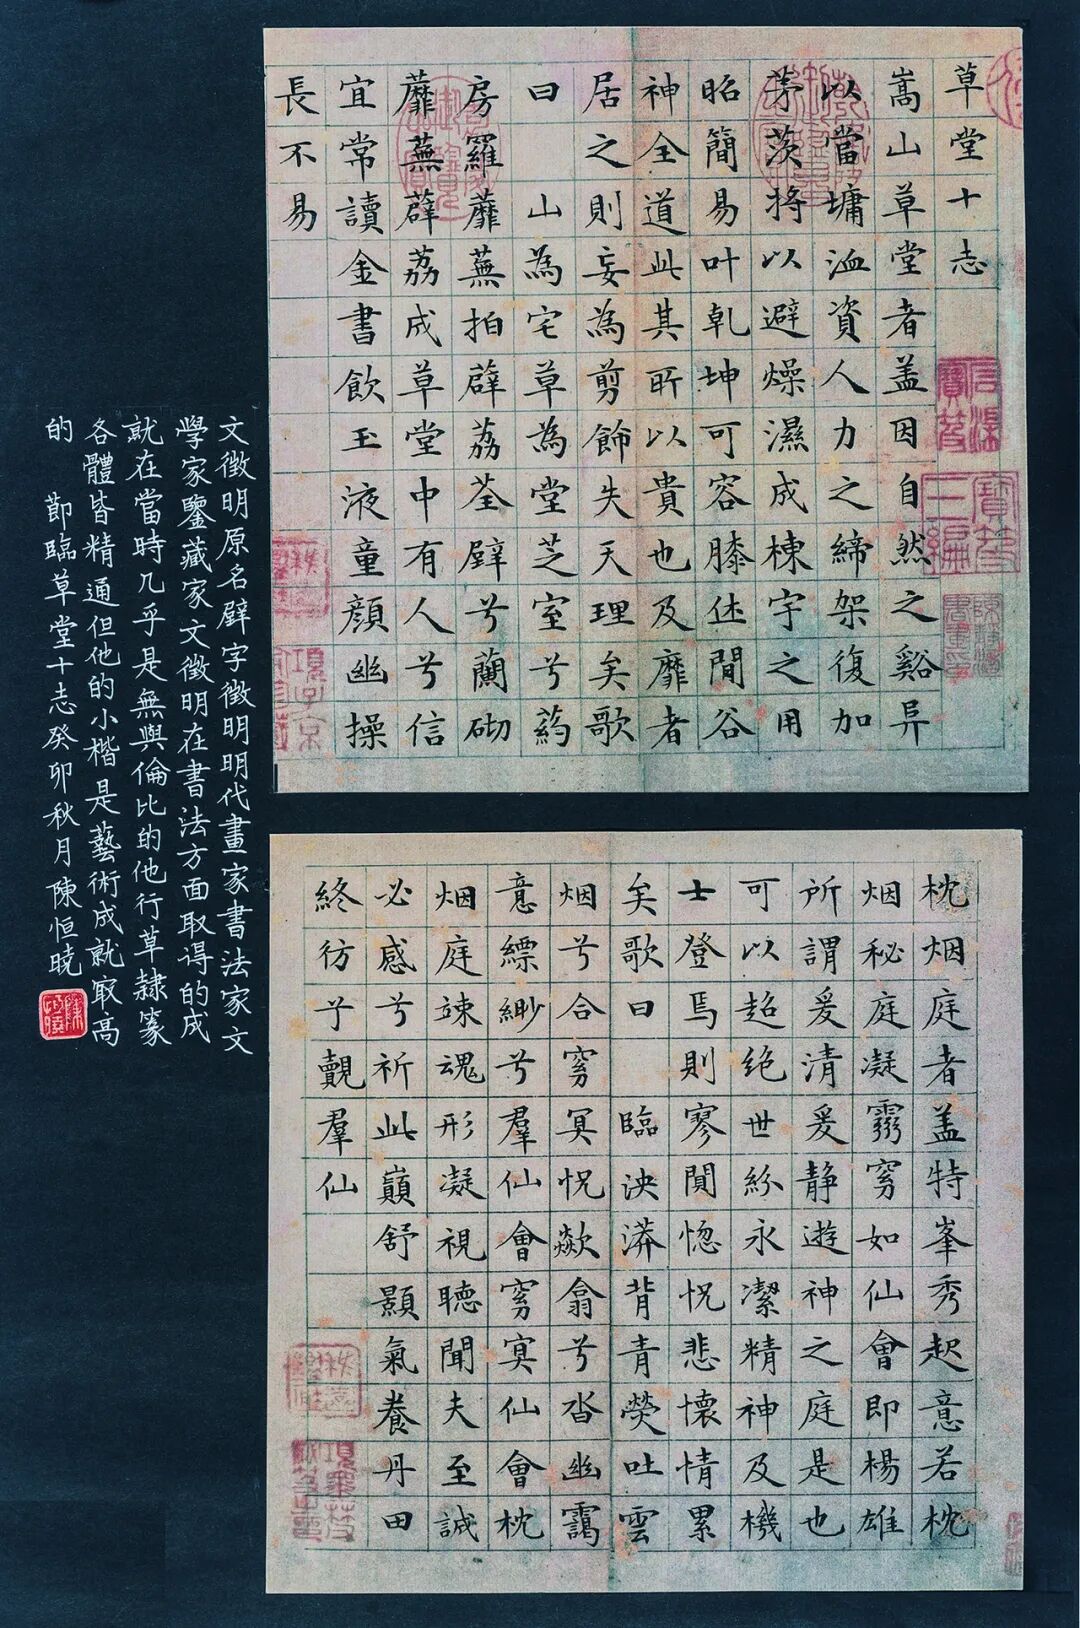 草堂十志
嵩山草堂者盖因自然之谿阜
以當墉洫資人力之締架復加
茅茨將以避燥濕成棟宇之用
昭簡易叶乾坤可容膝休閒谷
神全道此其所以貴也及靡者
居之則妄為剪飾失天理矣歌
曰　山為宅草為堂芝室兮葯
房羅蘼蕪拍薜荔荃壁兮蘭砌
蘼蕪薜荔成草堂中有人兮信
宜常讀金書飲玉液童顏幽操
長不易
枕烟庭者盖特峯秀起意若枕
烟秘庭凝霛窅如仙會即楊雄
所謂爰清爰静遊神之庭是也
可以超絶世紛永潔精神及機
士登焉則寥閴惚怳悲懷情累
矣歌曰　臨泱漭背青熒吐雲
烟兮合窅冥怳歘翕兮沓幽靄
意縹緲兮羣仙會窅冥仙會枕
烟庭竦魂形凝視聽聞夫至誠
必感兮祈此巔舒顥氣養丹田
終彷彿兮覿羣仙
文徵明原名壁字徵明明代畫家書法家文
學家鑒藏家文徵明在書法方面取得的成
就在當時几乎是無與倫比的他行草隸篆
各體皆精通但他的小楷是藝術成就最高
的　節臨草堂十志癸卯秋月陳恒曉